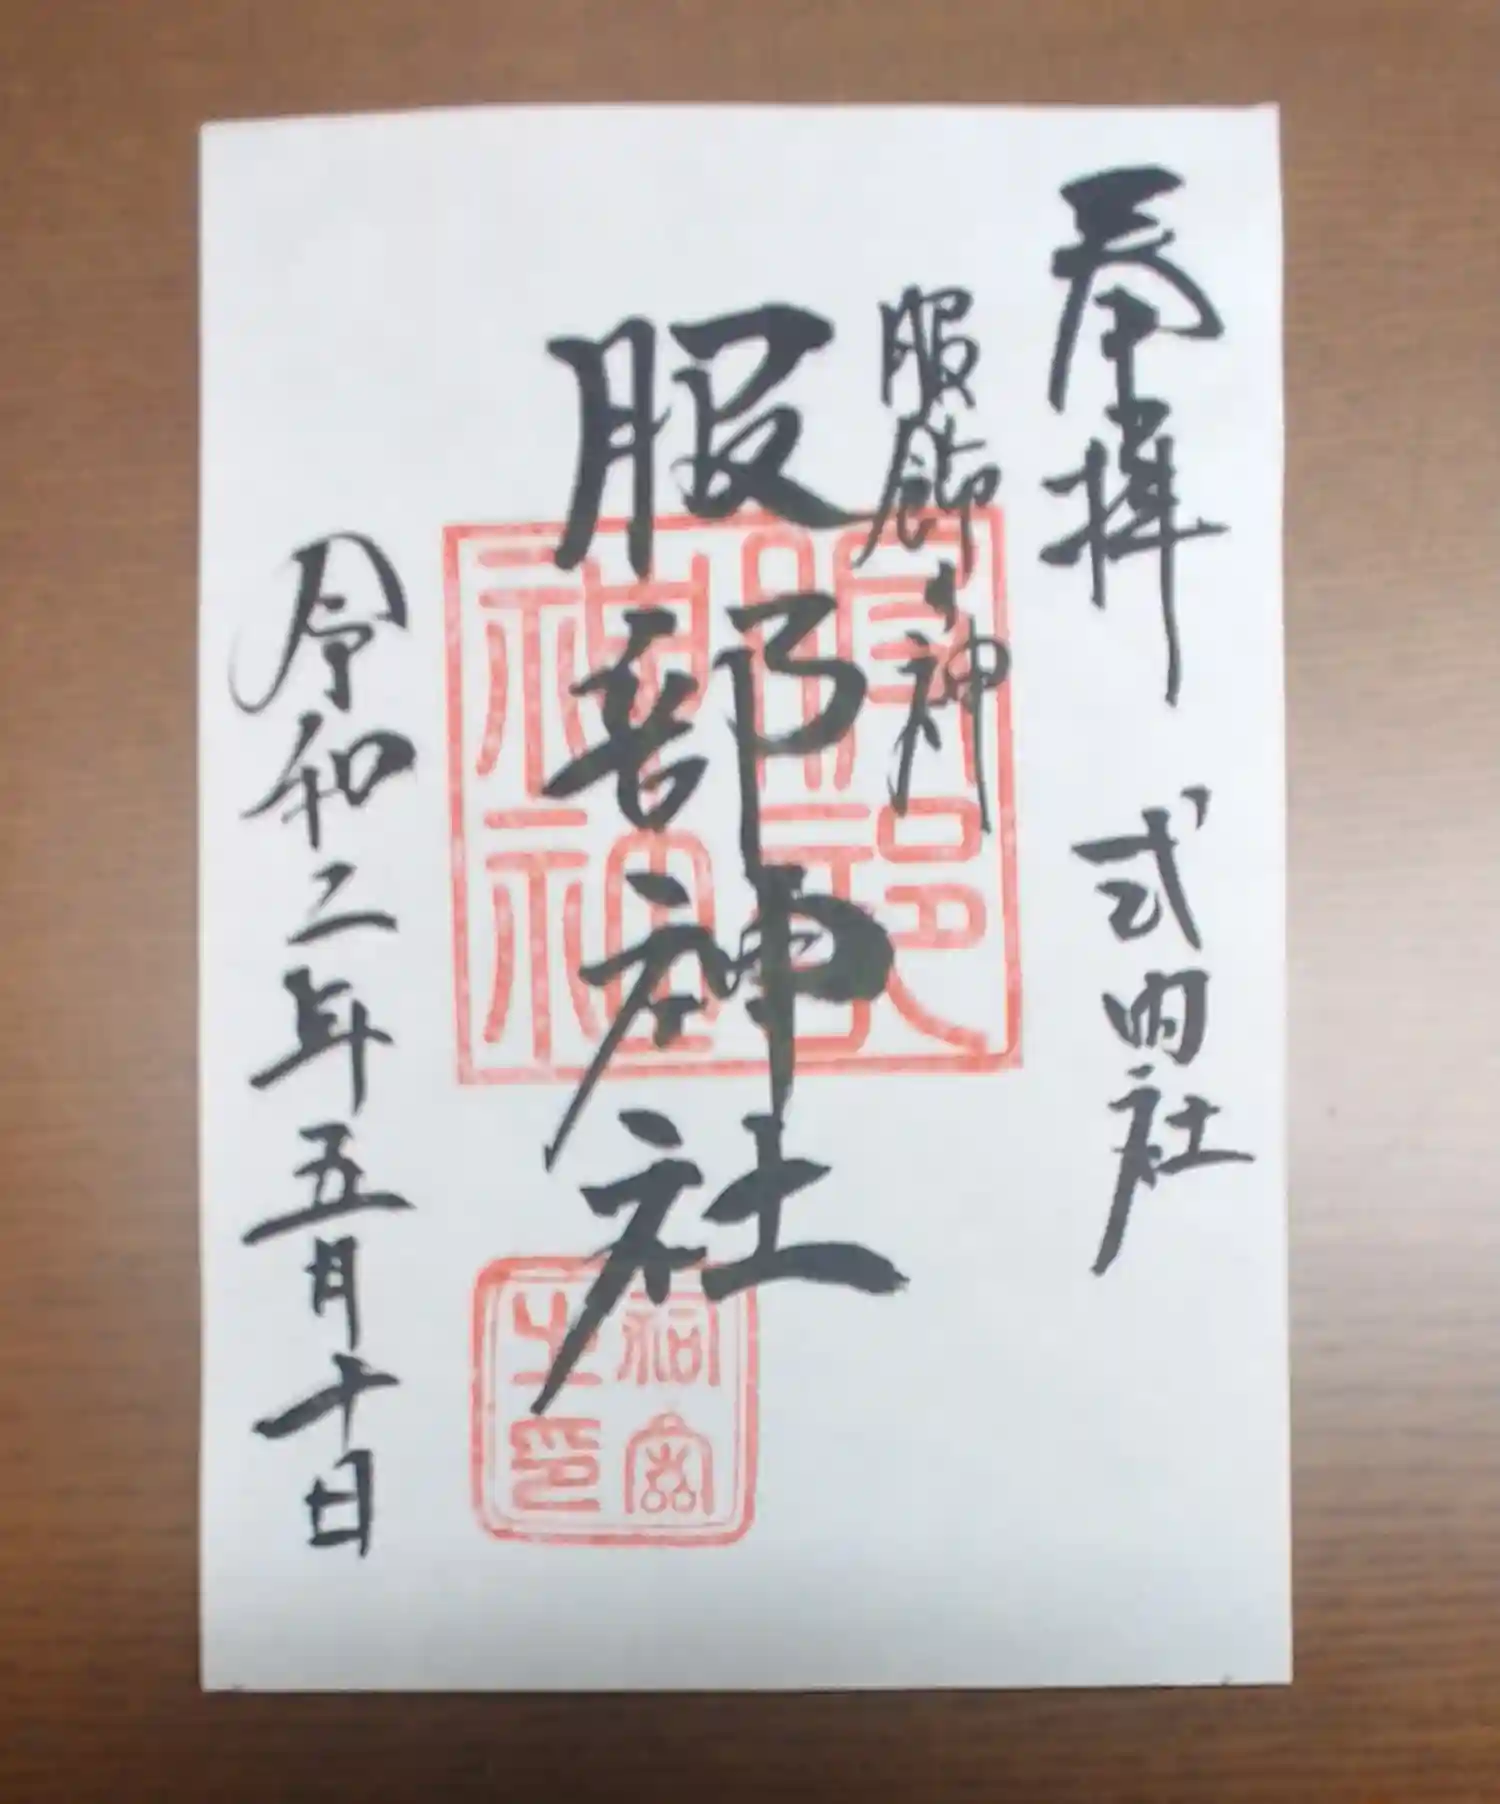 奉拝
式内社
服飾の神
服部神社
令和二年五月十日
服部
神社
祠官
之印